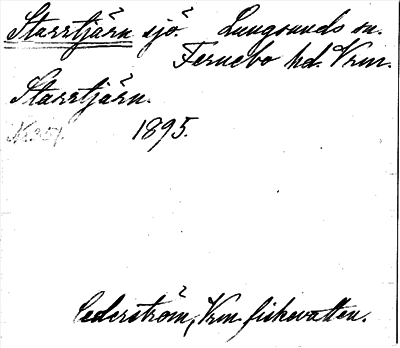 Starrtjärn sjö Lungsunds sn.
Fernebo hd. Vrm.
Starrtjärn.
1895.
Cederström, Vrm fiskevatten.